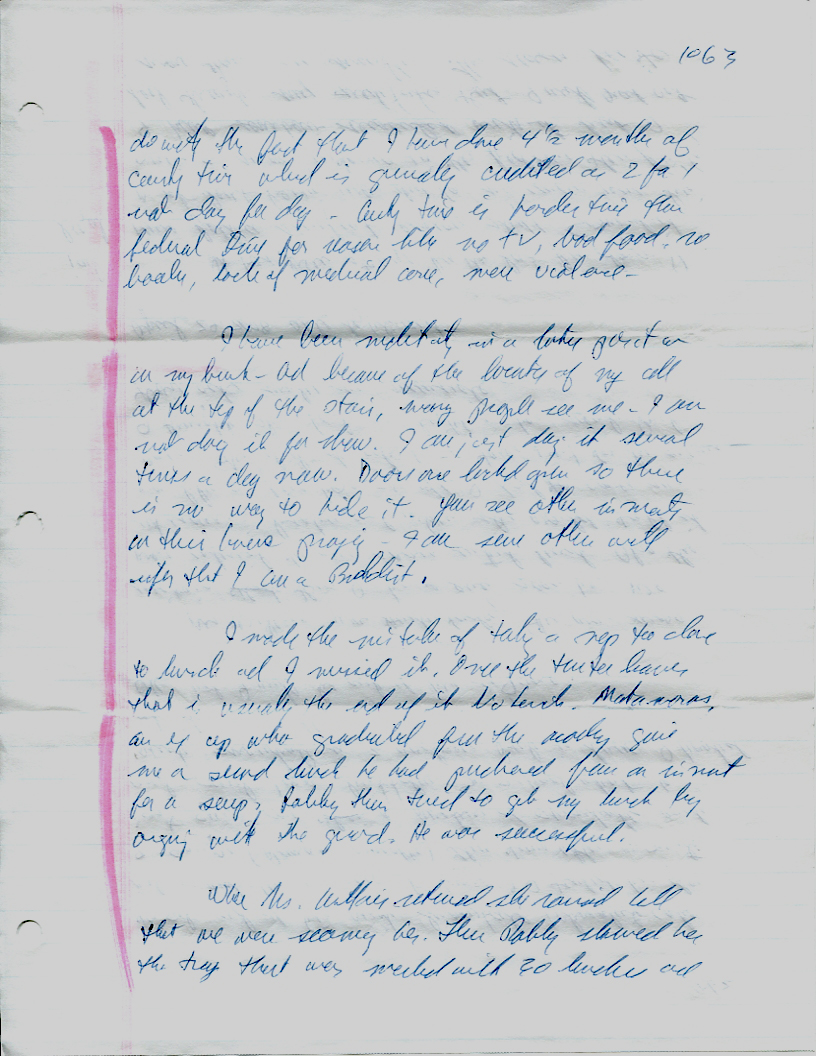 1063
do with the fact that I have done 4½ months of
county time which is generally credited as 2 for 1
not day for day - County time is harder time than
federal time for reason like no TV, bad food, no
books, lack of medical care, more violence -
I have been meditating in a lotus position
on my bunk - and because of the location of my cell
at the top of the stairs, many people see me - I am
not doing it for show. I am just doing it several
times a day now. Doors are locked open so there
is no way to hide it. You see other inmates
in this house praying - I am sure others will
infer that I am a Buddhist.
I made the mistake of taking a nap too close
to lunch and I missed it. Once the trustee leaves
that is usually the end of it No lunch. Matamoros,
an ex cop who graduated from the academy gave
me a second lunch he had purchased from an inmate
for a soup. Bobby then tried to get my lunch by
arguing with the guard. He was successful.
When Ms. returned she raised hell
that we were scamming her. Then Bobby showed her
the tray that was marked with 30 lunches and